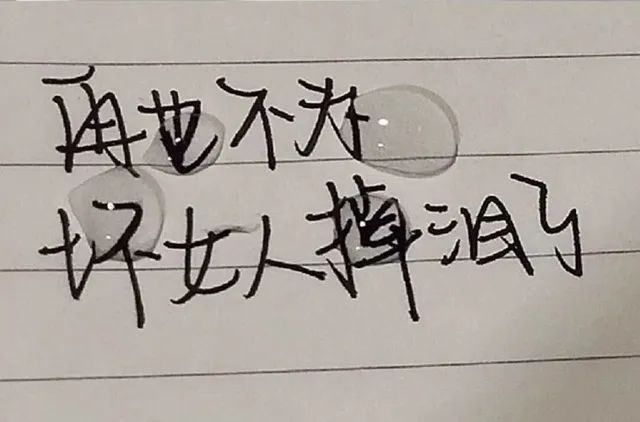 再也不为
坏女人掉泪了